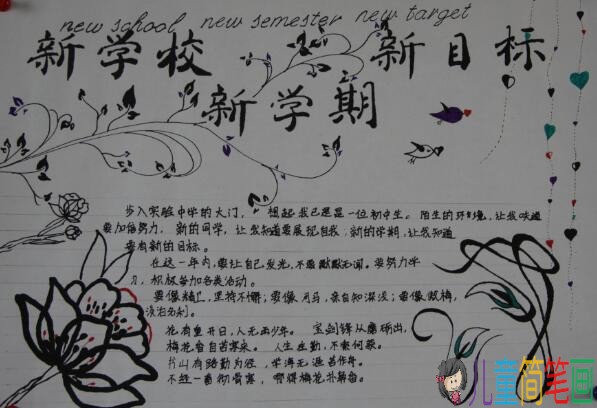 new school new semester new target
新学校 新目标
新学期
步入实验中学的大门，想起我已是是一位初中生。陌生的环境，让我知道
要加倍努力，新的同学，让我知道要展现自我，新的学期，让我知道
要有新的目标。
在这一年内，要让自己发光，不要默默无闻，要努力学
习，积极参加各类活动。
要像精卫，坚持不懈；要像司马，亲自知深浅；要像傲梅，
淡泊名利。
花有重开日，人无再少年。 宝剑锋从磨砺出，
梅花香自苦寒来。 人生在勤，不索何获。
书山有路勤为径，学海无涯苦作舟。
不经一番彻骨寒，哪得梅花扑鼻香。
儿童简笔画